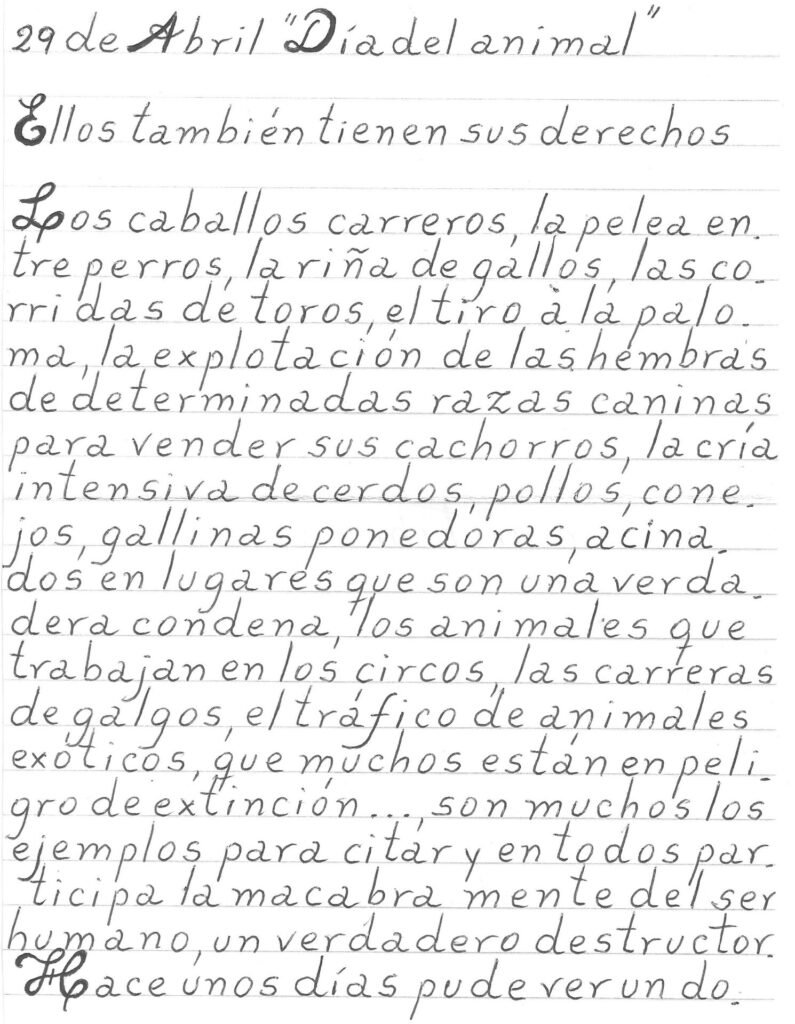 29 de Abril "Día del animal"
Ellos también tienen sus derechos
Los caballos carreros, la pelea en_
tre perros, la riña de gallos, las co_
rridas de toros, el tiro a la palo_
ma, la explotación de las hembras
de determinadas razas caninas
para vender sus cachorros, la cría
intensiva de cerdos, pollos, cone_
jos, gallinas ponedoras, acina_
dos en lugares que son una verda_
dera condena, los animales que
trabajan en los circos, las carreras
de galgos, el tráfico de animales
exóticos, que muchos están en peli_
gro de extinción..., son muchos los
ejemplos para citar y en todos par_
ticipa la macabra mente del ser
humano, un verdadero destructor.
Hace unos días pude ver un do_